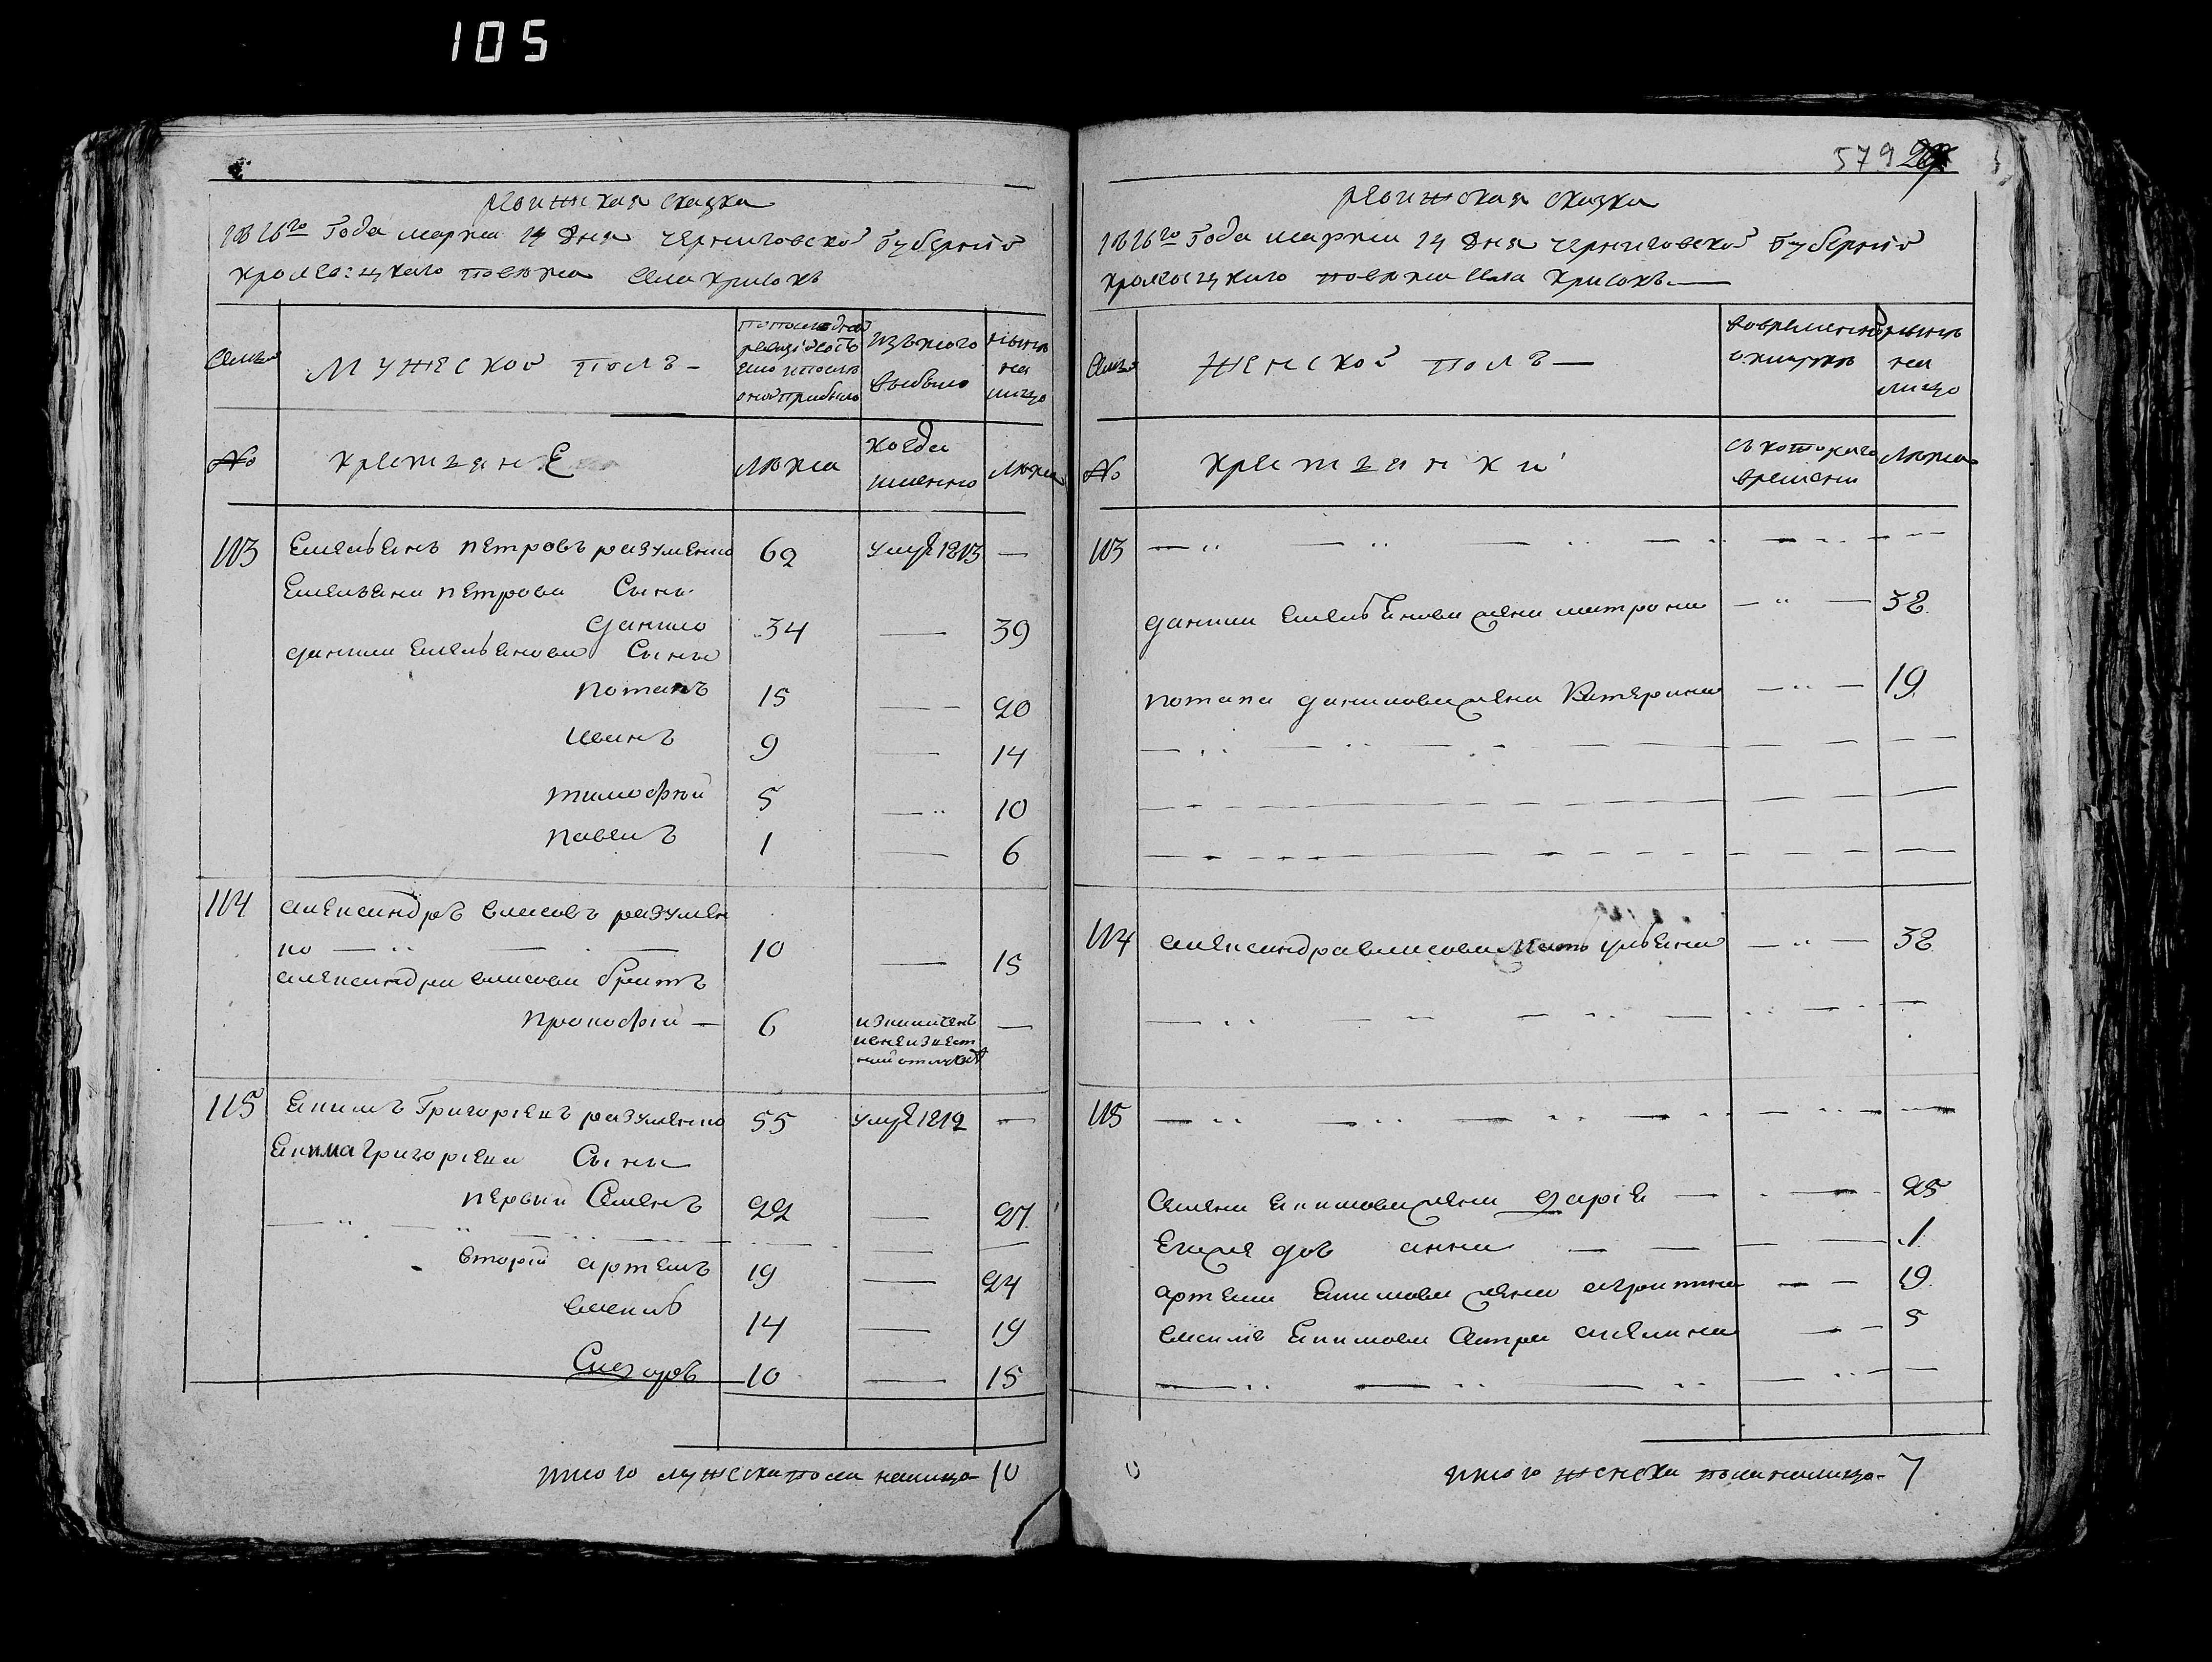 105
Ревижская сказка
1816го Года марта 14 дня черниговской Губерній
кролевецкаго повѣта села Крисокъ
Семьи
Мужеской полъ
по последней ревизіи состояло и после оной прибыло
изъ того выбыло
нынѣ на лицо
№
Крестьяне
лѣта
когда именно
лѣта
113 Емельянъ Петровъ разуменко 62 умре 1813 —
Емельяна Петрова Сынъ
Данило 34 — 39
Данила Емельянова Сыны
Потапъ 15 — 20
Иванъ 9 — 14
Тимофѣй 5 — 10
Павелъ 1 — 6
114 Александръ Власовъ разумен
ко 10 — 15
Александра Власова братъ
Прокофій — 6 —
115 Екимъ Григоріевъ разуменко 55 умре 1812 —
Екима Григоріева Сыны
первый Семенъ 22 — 27
вторій Артемъ 19 — 24
Василь 14 — 19
Сидоръ 10 — 15
итого мужеска пола налицо — 10
579
Ревижская сказка
1816го Года марта 14 дня черниговской Губерній
кролевецкаго повѣта села Крисокъ
Семьи
Женской полъ —
во временной отлучке
нынѣ на лицо
№
Крестьянки
съ котораго времени
лѣта
113
Данила Емельянова жена Матрона — 38
Потапа Данилова жена Катерина — 19
114 Александра Власова Мать Ульяна — 38
115
Семена Екимова жена Дарія — 25
Его же дочь Анна — 1
Артема Екимова жена — 19
Василя Екимова Сестра — 5
итого женска пола налицо — 7